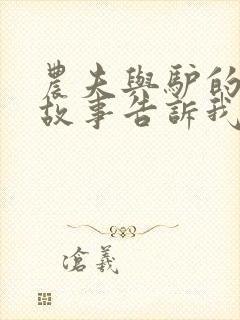 農夫與驴的
故事告訴我
滄羲